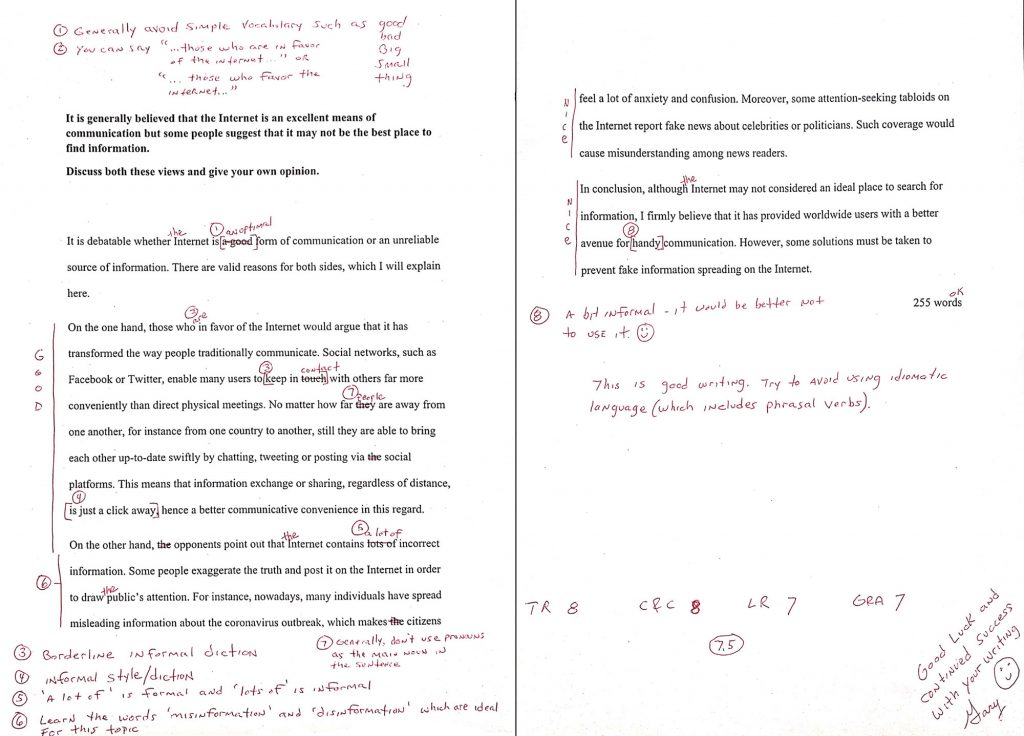 ① Generally avoid simple vocabulary such as good
bad
Big
small
thing
② You can say "...those who are in favor
of the internet..." or
"... those who favor the
internet..."
It is generally believed that the Internet is an excellent means of
communication but some people suggest that it may not be the best place to
find information.
Discuss both these views and give your own opinion.
the ① an optimal
It is debatable whether Internet is [a good] form of communication or an unreliable
source of information. There are valid reasons for both sides, which I will explain
here.
③
are
On the one hand, those who in favor of the Internet would argue that it has
transformed the way people traditionally communicate. Social networks, such as
③ contact
Facebook or Twitter, enable many users to [keep in touch] with others far more
⑦ people
conveniently than direct physical meetings. No matter how far they are away from
one another, for instance from one country to another, still they are able to bring
each other up-to-date swiftly by chatting, tweeting or posting via the social
platforms. This means that information exchange or sharing, regardless of distance,
④
[is just a click away,] hence a better communicative convenience in this regard.
GOOD
the ⑤ a lot of
On the other hand, the opponents point out that Internet contains lots of incorrect
information. Some people exaggerate the truth and post it on the Internet in order
⑥
the
to draw public's attention. For instance, nowadays, many individuals have spread
misleading information about the coronavirus outbreak, which makes the citizens
③ Borderline informal diction
④ informal style/diction
⑤ 'A lot of' is formal and 'lots of' is informal
⑥ Learn the words 'misinformation' and 'disinformation' which are ideal
For this topic
⑦ Generally, don't use pronouns
as the main noun in
the sentence
feel a lot of anxiety and confusion. Moreover, some attention-seeking tabloids on
the Internet report fake news about celebrities or politicians. Such coverage would
cause misunderstanding among news readers.
Nice
the
In conclusion, although Internet may not considered an ideal place to search for
information, I firmly believe that it has provided worldwide users with a better
⑧
avenue for [handy] communication. However, some solutions must be taken to
prevent fake information spreading on the Internet.
Nice
OK
255 words
⑧ A bit informal - it would be better not
to use it.
This is good writing. Try to avoid using idiomatic
language (which includes phrasal verbs).
TR 8 C&C 8 LR 7 GRA 7
7.5
Good Luck and
continued success
with your writing
Gary